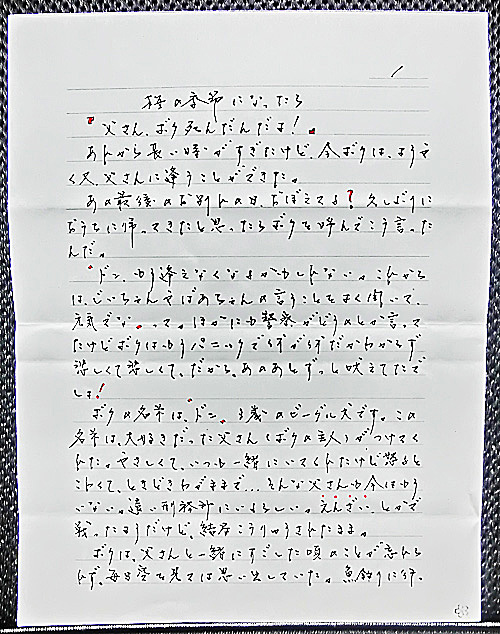 1
桜の季節になったら
『父さん、ボク死んだんだよ!』
あれから長い時がすぎたけど、今ボクは、ようや
く又、父さんに逢うことができた。
あの最後のお別れの日、おぼえてる?久しぶりに
おうちに帰ってきたと思ったらボクを呼んでこう言った
んだ。
「ドン、もう逢えなくなるかもしれない。これから
は、じいちゃんやばあちゃんの言うことをよく聞いて、
元気でな」って。ほかにも警察がどうのとか言って
たけどボクはもうパニックで何が何だかわからず
悲しくて悲しくて、だから、あのあとずっと吠えてたで
しょ!
ボクの名前は、「ドン」3歳のビーグル犬です。この
名前は、大好きだった父さん(ボクの主人)がつけてく
れた。やさしくて、いつも一緒にいてくれたけど怒ると
こわくて、ときどきわがままで…そんな父さんも今はもう
いない。遠い刑務所にいるらしい。えんざい、とかで
戦ったようだけど、結局こうりゅうされたまま。
ボクは、父さんと一緒にすごした頃のことが忘れら
れず、毎日空を見ては思い出していた。魚釣りに行、